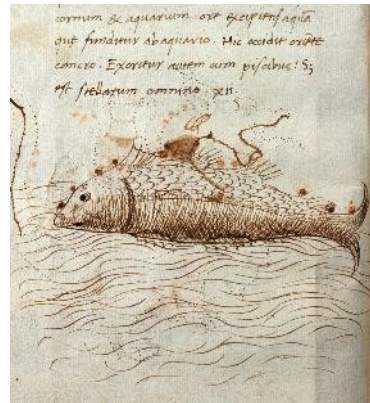 cornum & aquarium. ore excipiens aquā
que funditur ab aquario. Hic occidit oriēte
cancro. Exoritur autem cum piscibus: Sȝ
est stellarum omnino XII.